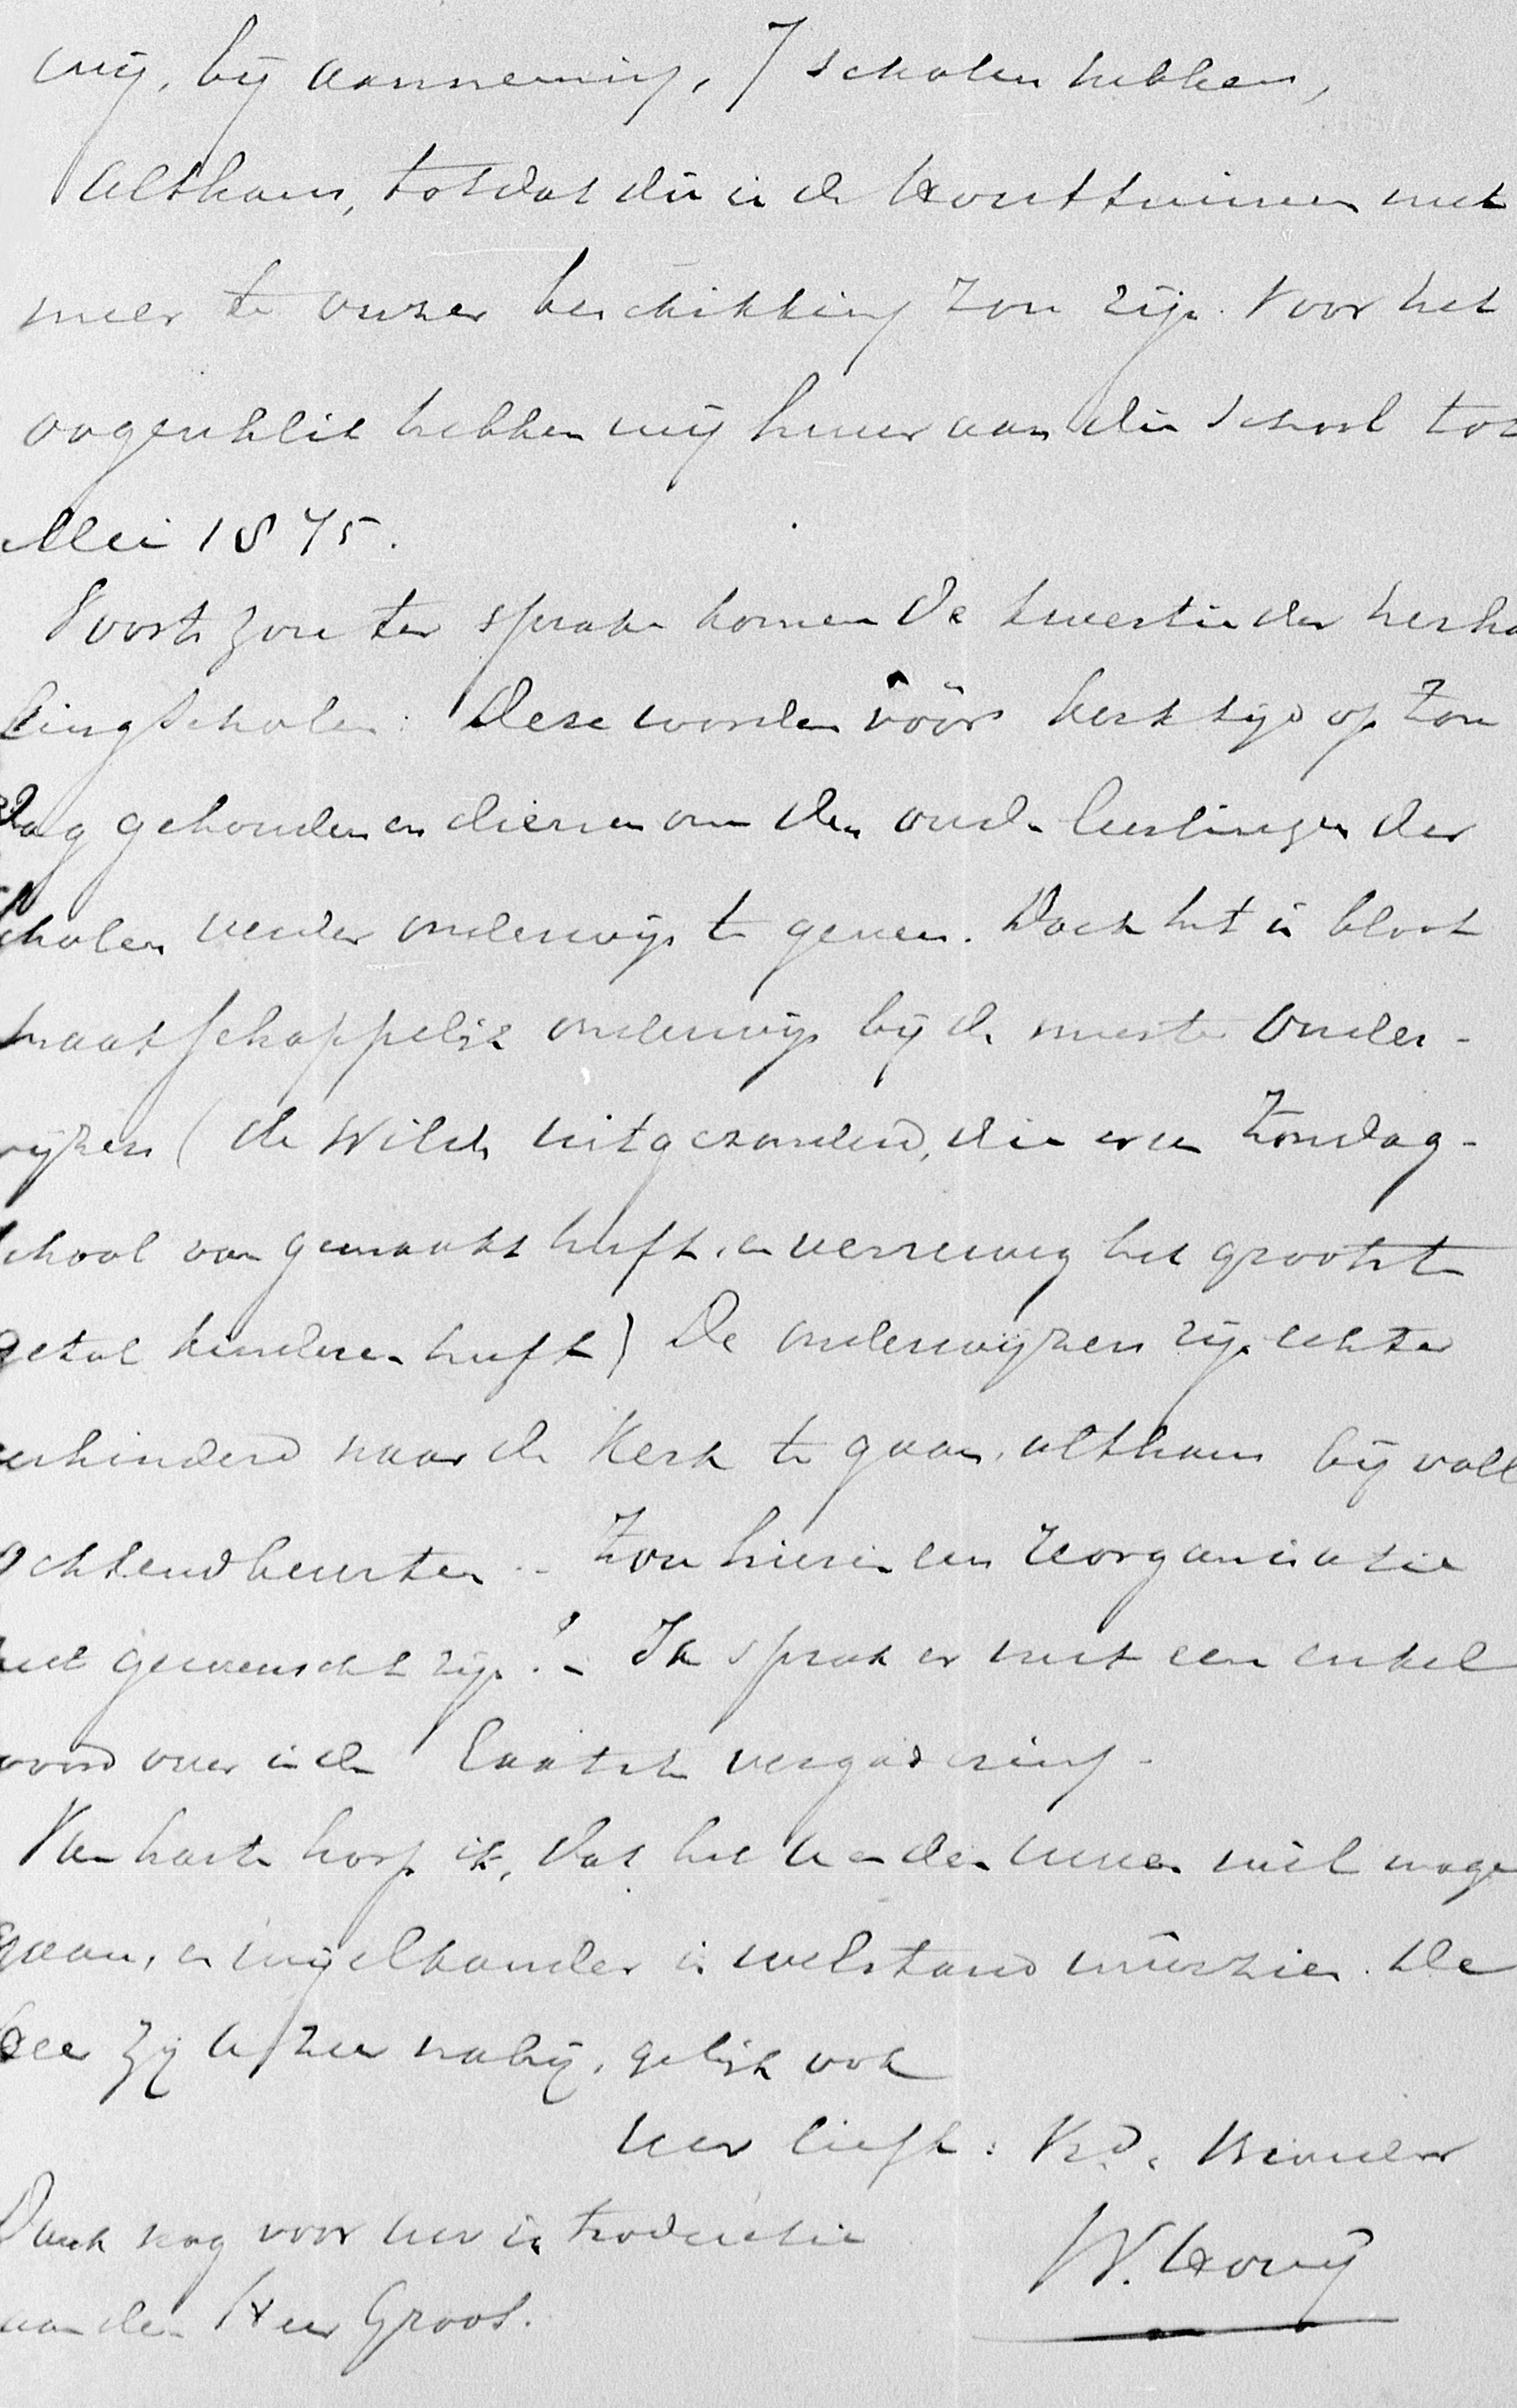 wij, bij aanneming, 7 scholen hebben,
althans, totdat die in de Houttuinen niet
meer te onzer beschikking zou zijn. Voor het
oogenblik hebben wij huur aan die school tot
Mei 1875.
Voorts zou ter sprake komen de kwestie der herha
lingscholen: Deze worden vóór kerktijd op Zon
dag gehouden en dienen om den oud-leerlingen der
scholen verder onderwijs te geven. Doch het is bloot
maatschappelijk onderwijs bij de meeste onder-
wijzers (de Wilde uitgezonderd, die er een Zondag-
school van gemaakt heeft, en verreweg het grootste
getal kinderen heeft) De onderwijzers zijn echter
verhinderd naar de Kerk te gaan, althans bij volle
ochtendbeurten.- Zou hierin een reorganisatie
niet gewenscht zijn?- Ik sprak er met een enkel
woord over in de laatste vergadering-
Van harte hoop ik, dat het U en den Uwen wèl moge
gaan, en wij elkander in welstand weêrzien. De
Heer zij U zeer nabij, gelijk ook
Uw liefh: Vrd. Broeder
W. Hovij
Dank nog voor uw introductie
aan den Heer Groot.